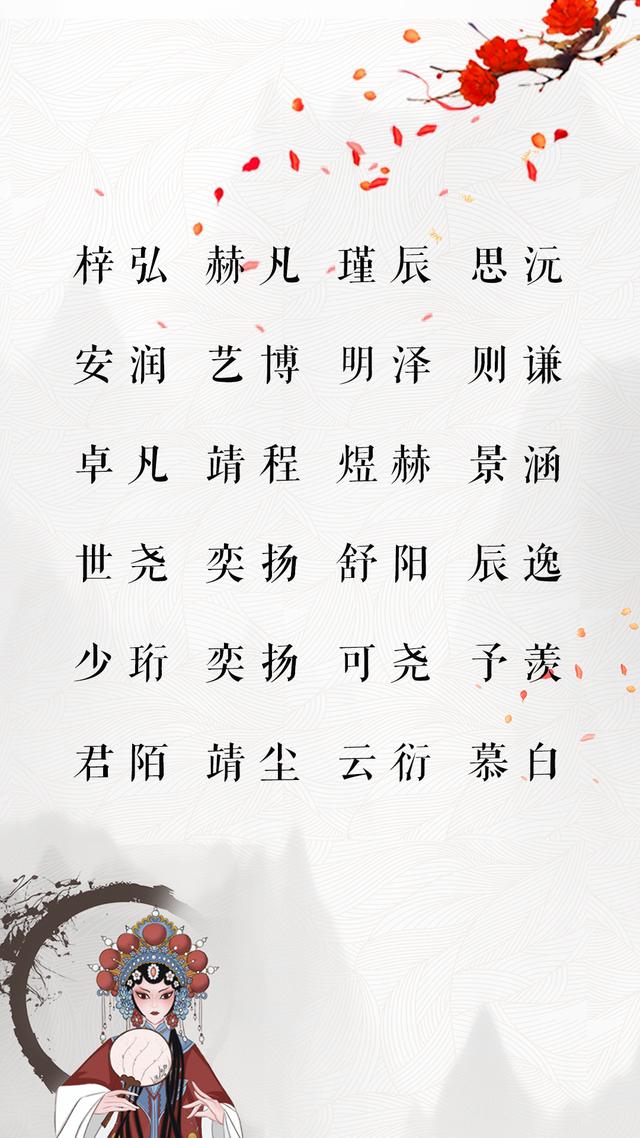 梓弘 赫凡 瑾辰 思沅
安润 艺博 明泽 则谦
卓凡 靖程 煜赫 景涵
世尧 奕扬 舒阳 辰逸
少珩 奕扬 可尧 予羡
君陌 靖尘 云衍 慕白